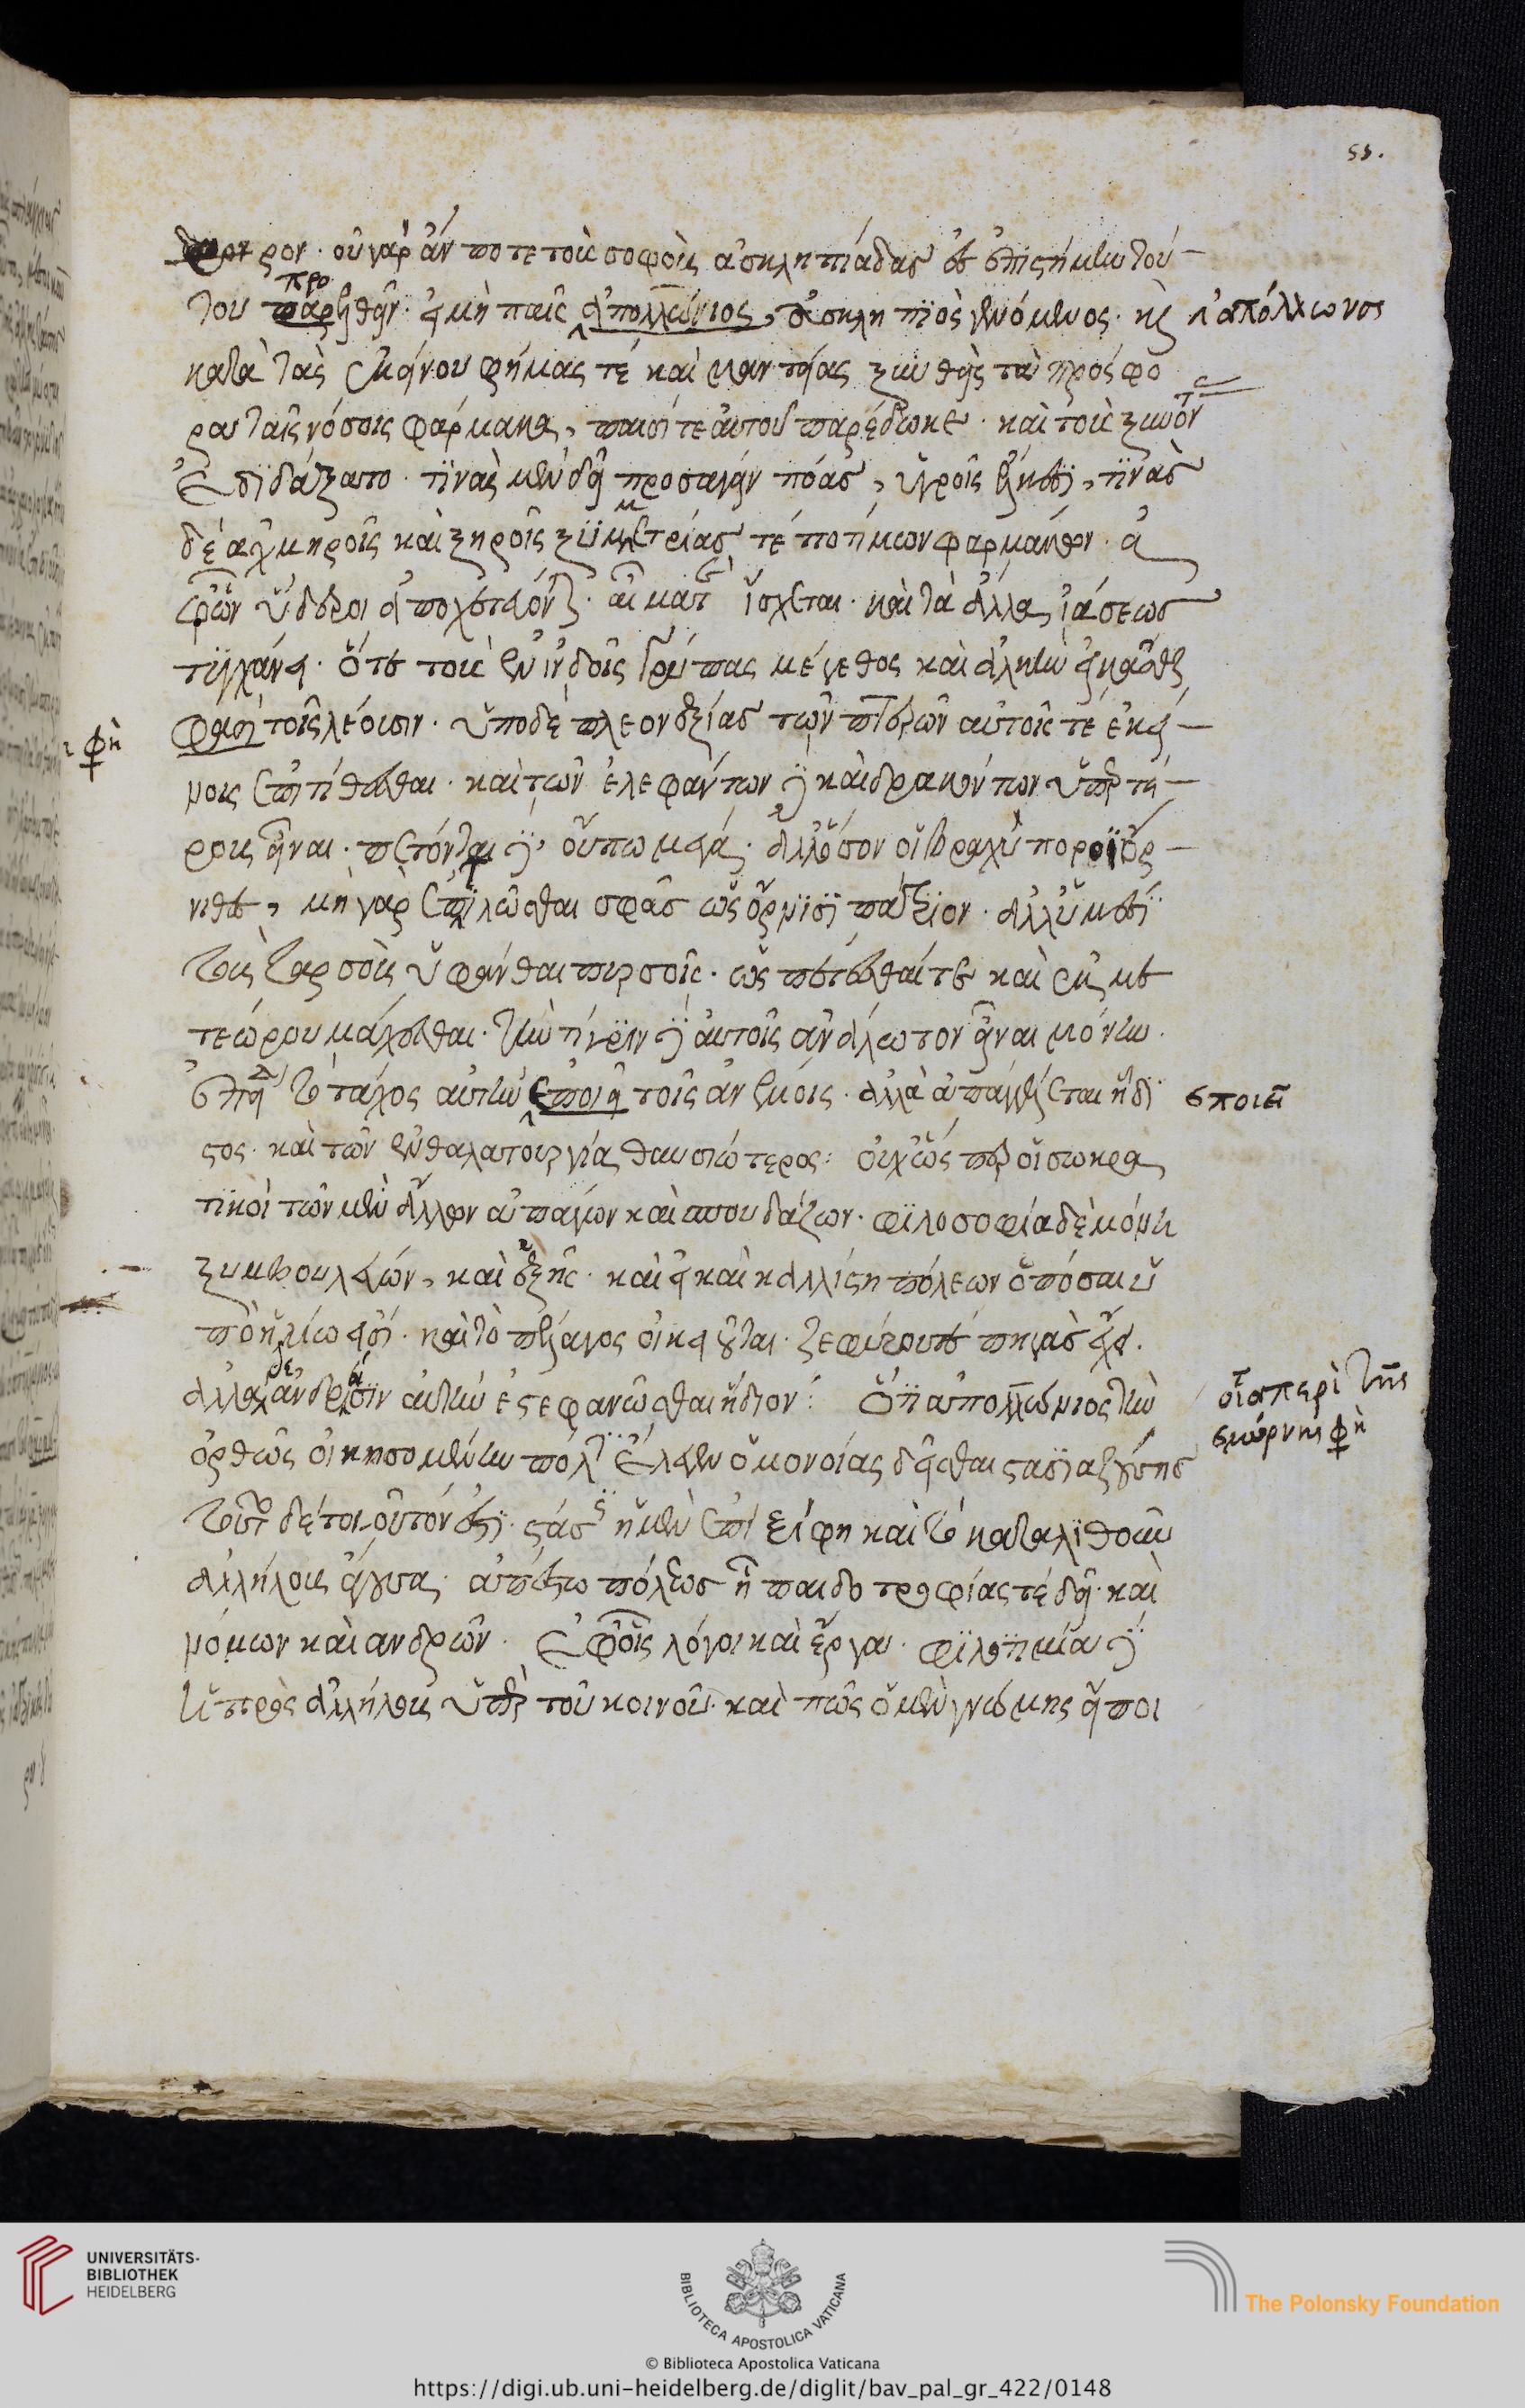 55.
ρον. οὐ γὰρ ἄν ποτε τοὺς σοφοὺς ἀσκληπιάδας ἐς ἐπιστήμην τού-
του παρελθεῖν. εἰ μὴ παῖς ἀπολλώνιος, ἀσκληπιὸς γενόμενος. καὶ
προ
ἀπόλλωνος
κατὰ τὰς ἐκείνου φήμας τὲ καὶ μαντείας ξυνθεὶς τὰ πρόσφο
ρα ταῖς νόσοις φάρμακα, παισί τε αὐτοῦ παρέδωκε. καὶ τοὺς ξυνόν
τ
ἐδιδάξατο. τίνας μὲν δεῖ προσάγειν πόας, ὑγροῖς ἕλκεσι, τίνας
δὲ αὐχμηροῖς καὶ ξηροῖς ξυμμετρίας τὲ ποτίμων φαρμάκων. ὑ
φ' ὧν ὕδεροι ἀποχετεύονται. αἷμά τε ἴσχεται. καὶ τὰ ἄλλα ἰάσεως
τυγχάνει. ὅτι τοὺς ἐν ἰνδοῖς γρύπας μέγεθος καὶ ἀλκὴν εἰκάσθαι
φασὶ τοῖς λέουσιν. ὑπὸ δὲ πλεονεξίας τῶν πτερῶν αὐτοῖς τὲ ἐκεί-
φη
νοις ἐπιτίθεσθαι. καὶ τῶν ἐλεφάντων δὲ καὶ δρακόντων ὑπερτέ-
ρους εἶναι. πέτονται δὲ οὔπω μέγα. ἀλλ' ὅσον οἱ βραχύποροι ὄρ-
νιθες, μὴ γὰρ ἐπτιλῶσθαι σφᾶς ὡς ὄρνισι πάτριον. ἀλλ' ὑμέσι
τοὺς ταρσοὺς ὑφάνθαι πυρσοῖς. ὡς πέτεσθαί τε καὶ ἐκ με
τεώρου μάχεσθαι. τὴν τίγριν δὲ αὐτοῖς ἀνάλωτον εἶναι μόνην.
ἐπειδὴ τὸ τάχος αὐτὴν ἐποιεῖ τοῖς ἀνέμοις. ἀλλὰ ἀπαγγέλλεται ἥδι
εσποιεῖ
στος. καὶ τῶν ἐν θαλαττουργίᾳ θαυσιώτερος: οὐχ ὥσπερ οἱ σωκρα
τικοὶ τῶν μὲν ἄλλων ἀπάγων καὶ σπουδάζων. φιλοσοφίᾳ δὲ μόνῃ
ξυμβουλεύων, καὶ ἑξῆς. καὶ εἰ καὶ καλλίστη πόλεων ὁπόσαι ὑ
πὸ ἡλίῳ εἰσί. καὶ τὸ πέλαγος οἰκειοῦται. ζεφύρου τὲ πηγὰς ἔχει.
ἀλλὰ ἀνδράσιν αὐτὴν ἐστεφανῶσθαι ἥδιον: ὅτι ἀπολλώνιος τὴν
δε
οἷα περὶ τῆς
σμύρνης φη
ὀρθῶς οἰκησομένην πόλιν ἔλεγεν ὁμονοίας δεῖσθαι στασιαζούσης
τοῦτο δὲ τοιοῦτόν ἐστι. στάσις ἡ μὲν ἐπὶ ξίφη καὶ τὸ καταλιθοῦν
ἀλλήλους ἄγουσα. ἀπέστω πόλεως ᾗ παιδοτροφίας τὲ δεῖ. καὶ
νόμων καὶ ἀνδρῶν. ἐφ' οἷς λόγοι καὶ ἔργα. φιλοτιμία δὲ
ἡ πρὸς ἀλλήλους ὑπὲρ τοῦ κοινοῦ. καὶ πῶς ὁ μὲν γνώμης εἴποι
UNIVERSITÄTS-
BIBLIOTHEK
HEIDELBERG
BIBLIOTECA APOSTOLICA VATICANA
The Polonsky Foundation
© Biblioteca Apostolica Vaticana
https://digi.ub.uni-heidelberg.de/diglit/bav_pal_gr_422/0148